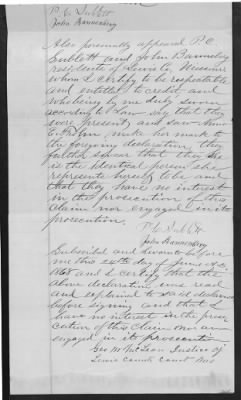 P. C. Sublett
John Bannenberg
Also personally appeared P. C.
Sublett and John Bannenberg
residents of Lewis Co Missouri
whom I certify to be respectable
and entitled to credit and
who being by me duly sworn
according to law say that they
were present and saw
make her mark to
the foregoing declaration they
further swear that they
is the identical person she
represents herself to be and
that they have no interest
in the prosecution of this
Claim nor engaged in its
prosecution.
P C Sublett
John Bannenberg
Subscribed and sworn to before
me this day of June A.D.
and I certify that the
above declaration was read
and explained to said declarant
before signing and that I
have no interest in the prose
cution of this Claim nor am
engaged in its prosecution
Geo M McLean Justice of
Lewis County Court Mo